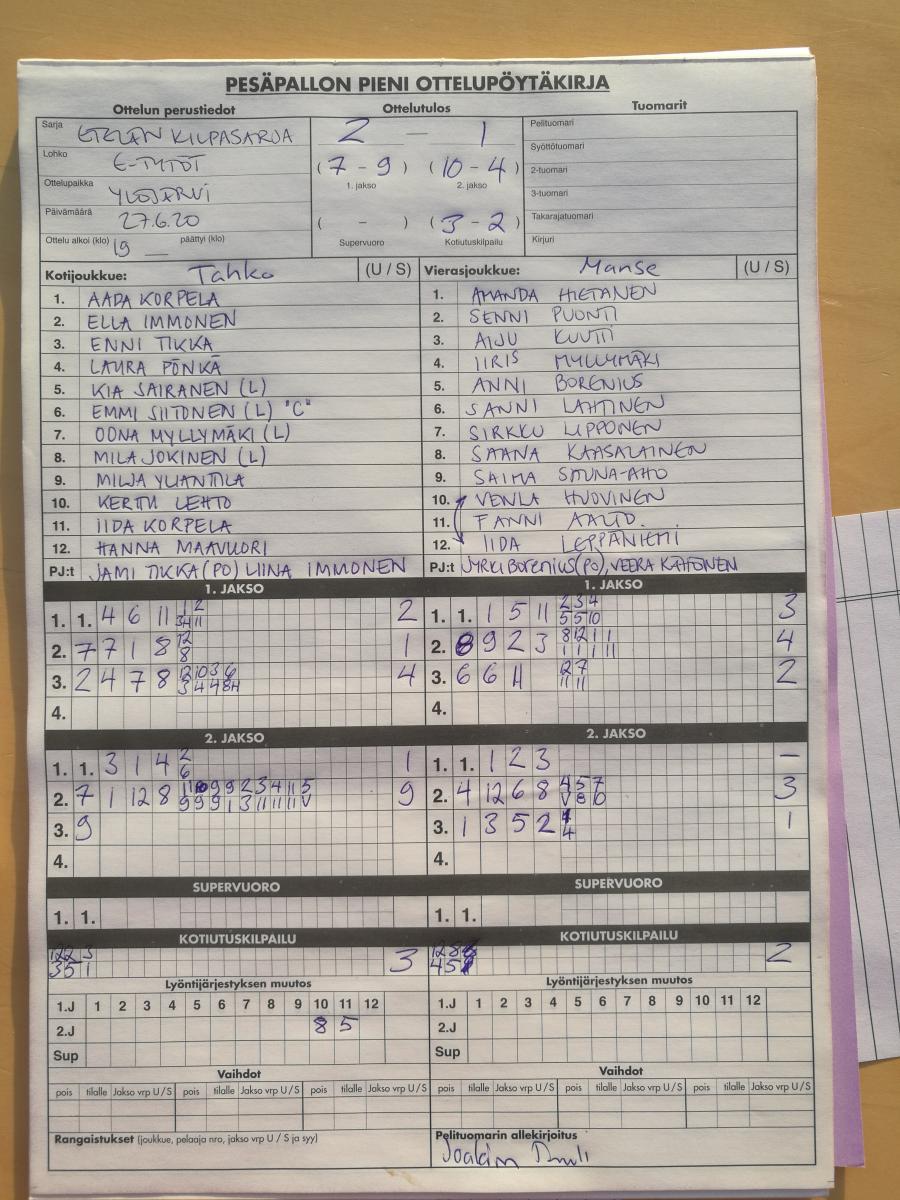 PESÄPALLON PIENI OTTELUPÖYTÄKIRJA
Ottelun perustiedot Ottelutulos Tuomarit
Sarja ETELÄN KILPASARJA
Lohko E-TYTÖT
Ottelupaikka YLÖJÄRVI
Päivämäärä 27.6.20
Ottelu alkoi (klo) 19 päättyi (klo)
2 — 1
( 7 - 9 ) ( 10 - 4 )
1. jakso 2. jakso
( - ) ( 3 - 2 )
Supervuoro Kotiutuskilpailu
Pelituomari
Syöttötuomari
2-tuomari
3-tuomari
Takarajatuomari
Kirjuri
Kotijoukkue: Tahko (U / S)
1. AADA KORPELA
2. ELLA IMMONEN
3. ENNI TIKKA
4. LAURA PÖNKÄ
5. KIA SAIRANEN (L)
6. EMMI SIITONEN (L) "C"
7. OONA MYLLYMÄKI (L)
8. MILA JOKINEN (L)
9. MILJA YLIANTTILA
10. KERTTU LEHTO
11. IIDA KORPELA
12. HANNA MAAVUORI
PJ:t JAMI TIKKA (PO) LIINA IMMONEN
Vierasjoukkue: Manse (U / S)
1. AMANDA HIETANEN
2. SENNI PUONTI
3. AIJU KUUTTI
4. IIRIS MYLLYMÄKI
5. ANNI BORENIUS
6. SANNI LAHTINEN
7. SIRKKU LIPPONEN
8. SAANA KAASALAINEN
9. SAIMA SAUNA-AHO
10. VENLA HUOVINEN
11. FANNI AALTO.
12. IIDA LEPPÄNIEMI
PJ:t JYRKI Borenius (PO), VEERA KÄHÖNEN
1. JAKSO
1. 1. 4 6 11 2
2. 7 7 1 8 1
3. 2 4 7 8 4
4.
1. JAKSO
1. 1. 1 5 11 3
2. 8 9 2 3 4
3. 6 6 11 2
4.
2. JAKSO
1. 1. 3 1 4 1
2. 7 1 12 8 9
3. 9
4.
2. JAKSO
1. 1. 1 2 3 –
2. 4 12 6 8 3
3. 1 3 5 2 1
4.
SUPERVUORO
1. 1.
SUPERVUORO
1. 1.
KOTIUTUSKILPAILU
3
KOTIUTUSKILPAILU
2
Lyöntijärjestyksen muutos
1.J 1 2 3 4 5 6 7 8 9 10 11 12
2.J 8 5
Sup
Lyöntijärjestyksen muutos
1.J 1 2 3 4 5 6 7 8 9 10 11 12
2.J
Sup
Vaihdot
pois tilalle Jakso vrp U / S pois tilalle Jakso vrp U / S pois tilalle Jakso vrp U / S
Vaihdot
pois tilalle Jakso vrp U / S pois tilalle Jakso vrp U / S pois tilalle Jakso vrp U / S
Rangaistukset (joukkue, pelaaja nro, jakso vrp U / S ja syy)
Pelituomarin allekirjoitus
Joakim